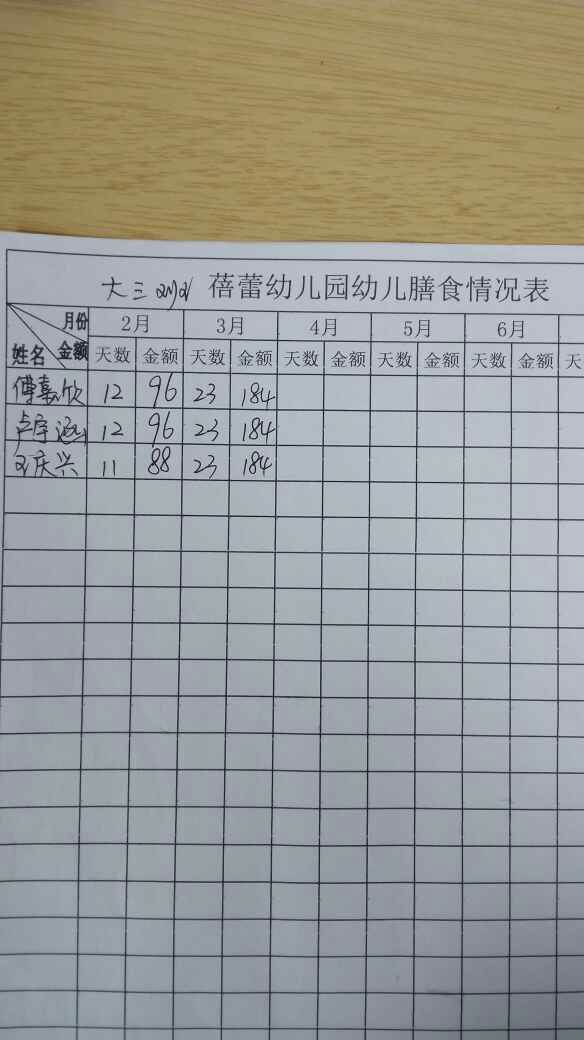 大三 蓓蕾幼儿园幼儿膳食情况表
月份 2月 3月 4月 5月 6月
姓名 金额 天数 金额 天数 金额 天数 金额 天数 金额 天数 金额 天
傅嘉欣 12 96 23 184
卢宇涵 12 96 23 184
王庆兴 11 88 23 184